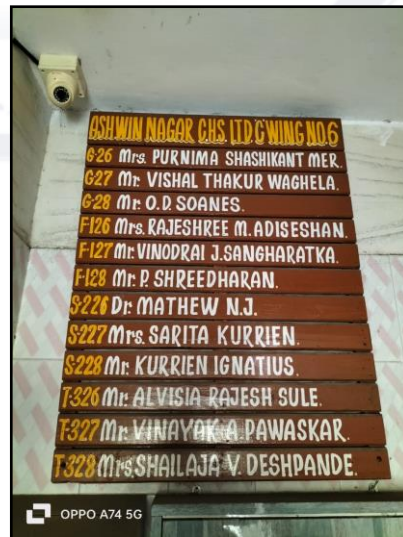 ASHWIN NAGAR CHS. LTD C WING NO.6
G-26 Mrs. PURNIMA SHASHIKANT MER.
G27 Mr. VISHAL THAKUR WAGHELA.
G-28 Mr. O.D. SOANES.
F-126 Mrs. RAJESHREE M. ADISESHAN.
F-127 Mr. VINODRAI J. SANGHARATKA.
F-128 Mr. P. SHREEDHARAN.
S-226 Dr. MATHEW N.J.
S-227 Mrs. SARITA KURRIEN.
S-228 Mr. KURRIEN IGNATIUS.
T-326 Mr. ALVISIA RAJESH SULE.
T-327 Mr. VINAYAK A. PAWASKAR.
T-328 Mrs. SHAILAJA V. DESHPANDE.
OPPO A74 5G